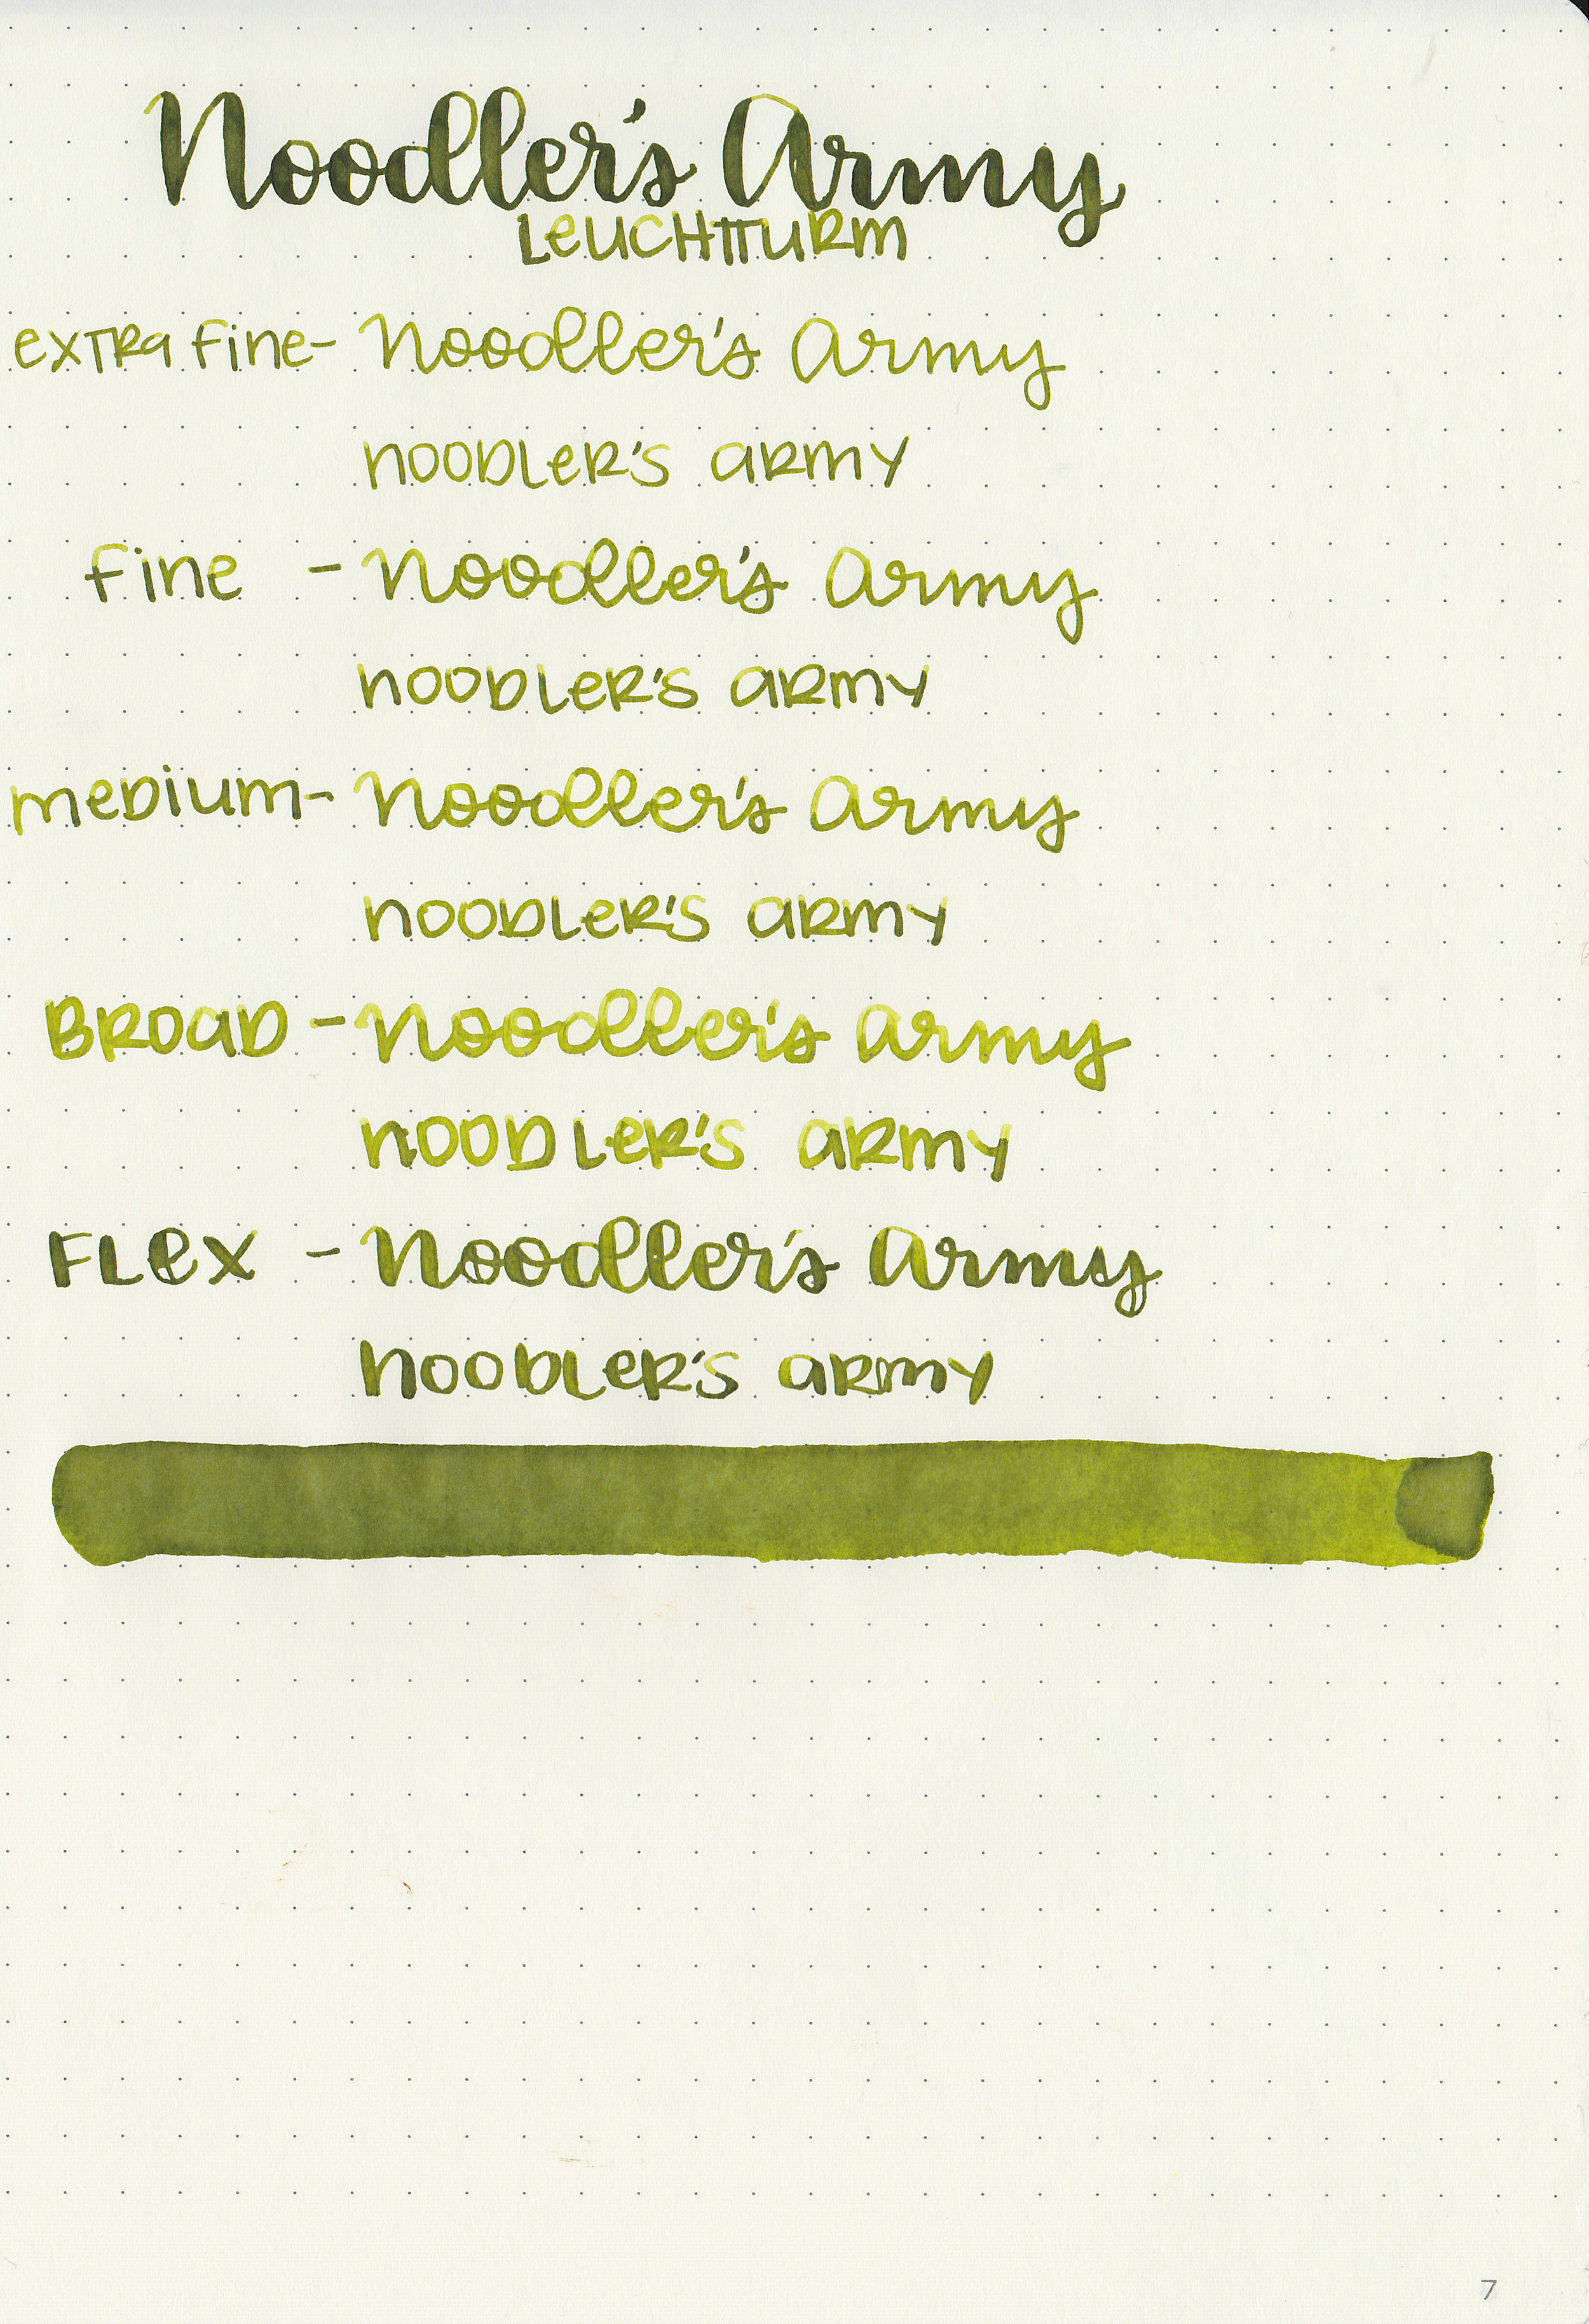 Noodler's Army
Leuchtturm
extra fine- Noodler's Army
noodler's army
fine - Noodler's Army
noodler's army
medium- Noodler's Army
noodler's army
Broad - Noodler's Army
noodler's army
Flex - Noodler's Army
noodler's army
7